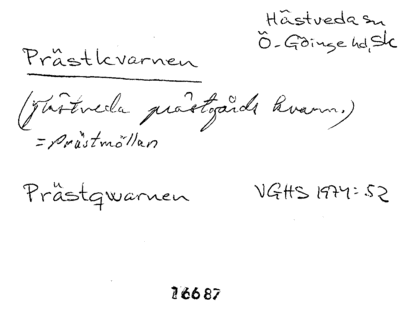 Hästveda sn
Ö-Göinge hd, Sk
Prästkvarnen
(Hästveda prästgårds kvarn.)
= Prästmöllan
Prästqwarnen VGHS 1974:52
26687